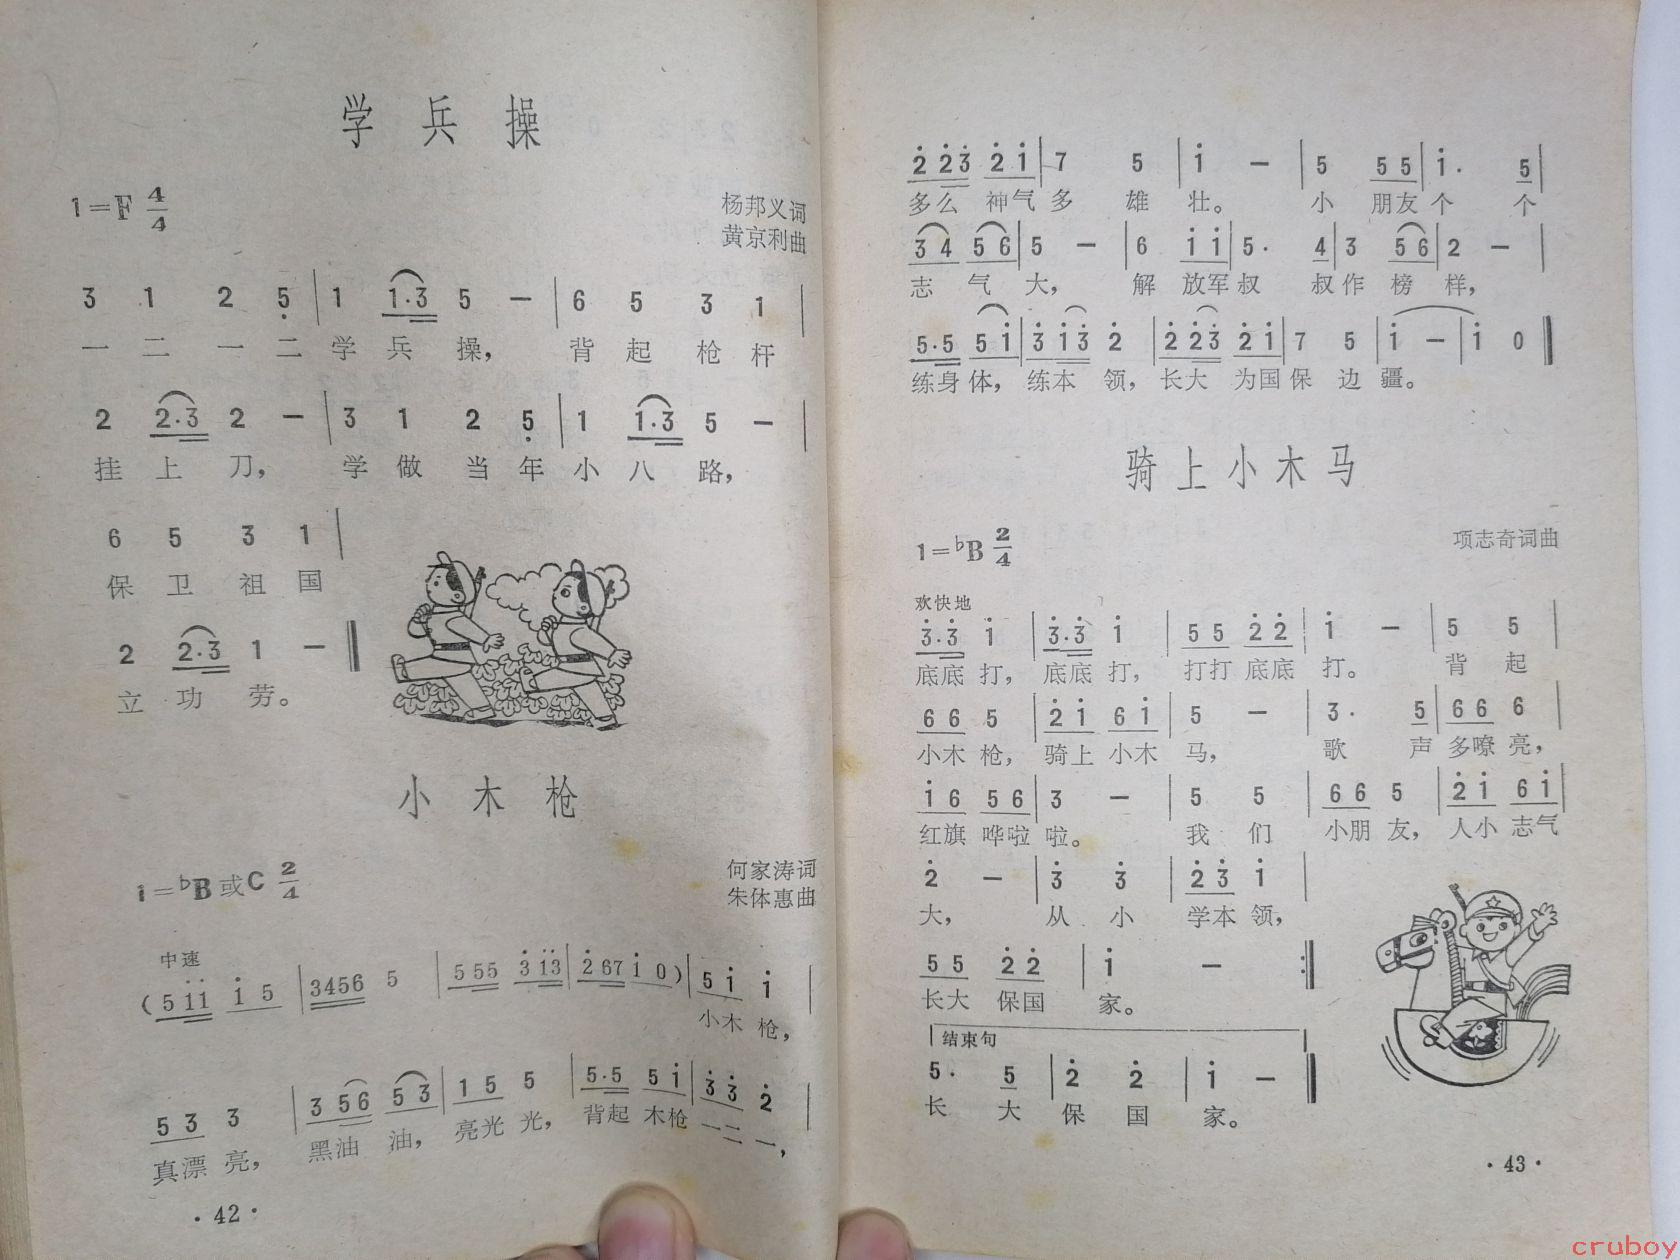 学兵操
1=F 4/4
杨邦义词
黄京利曲
3 1 2 5̣ | 1 1·3 5 — | 6 5 3 1 |
一 二 一 二 学 兵 操， 背 起 枪 杆
2 2·3 2 — | 3 1 2 5̣ | 1 1·3 5 — |
挂 上 刀， 学 做 当 年 小 八 路，
6 5 3 1 |
保 卫 祖 国
2 2·3 1 — ‖
立 功 劳。
小木枪
1=♭B或C 2/4
何家涛词
朱体惠曲
中速
(5 i̇i̇ i̇ 5 | 3456 5 | 5 55 3̇ i̇3̇ | 2̇ 67 i̇ 0) | 5 i̇ i̇ |
小木 枪，
5 3 3 | 3 56 5 3 | 1 5 5 | 5·5 5 i̇ | 3̇ 3̇ 2̇ |
真漂 亮， 黑油 油， 亮光 光， 背起 木枪 一二 一，
·42·
2̇ 2̇3̇ 2̇ i̇ | 7 5 | i̇ — | 5 5 5 | i̇· 5 |
多么 神气 多 雄 壮。 小 朋友 个 个
3 4 5 6 | 5 — | 6 i̇ i̇ | 5· 4 | 3 5 6 | 2 — |
志 气 大， 解 放军 叔 叔 作 榜 样，
5·5 5 i̇ | 3̇ i̇3̇ 2̇ | 2̇ 2̇3̇ 2̇ i̇ | 7 5 | i̇ — | i̇ 0 ‖
练身 体， 练本 领， 长大 为国 保 边 疆。
骑上小木马
1=♭B 2/4
项志奇词曲
欢快地
3̇·3̇ i̇ | 3̇·3̇ i̇ | 5 5 2̇ 2̇ | i̇ — | 5 5 |
底底 打， 底底 打， 打打 底底 打。 背 起
6 6 5 | 2̇ i̇ 6 i̇ | 5 — | 3· 5 | 6 6 6 |
小木 枪， 骑上 小木 马， 歌 声 多嘹 亮，
i̇ 6 5 6 | 3 — | 5 5 | 6 6 5 | 2̇ i̇ 6 i̇ |
红旗 哗啦 啦。 我 们 小朋 友， 人小 志气
2̇ — | 3̇ 3̇ | 2̇ 3̇ i̇ |
大， 从 小 学本 领，
5 5 2̇ 2̇ | i̇ — :‖
长大 保国 家。
结束句
5· 5 | 2̇ 2̇ | i̇ — ‖
长 大 保 国 家。
·43·
cruboy